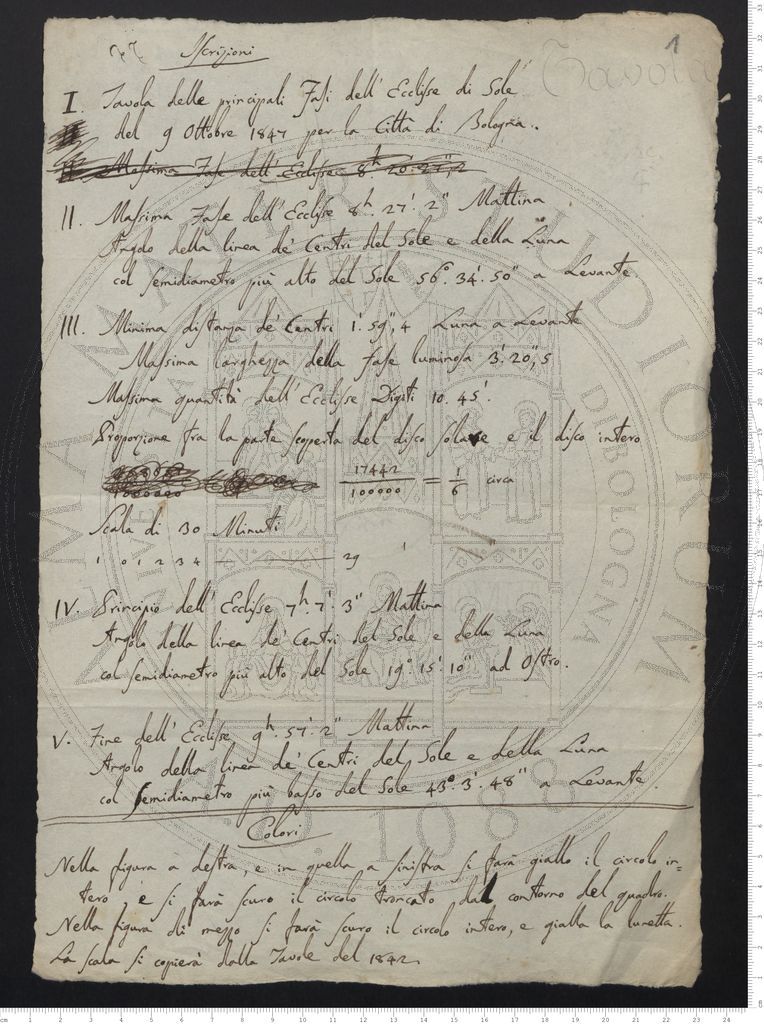 Iscrizioni
1
Tavola
I. Tavola delle principali Fasi dell' Ecclisse di Sole
del 9 Ottobre 1847 per la Città di Bologna.
II. Massima Fase dell' Ecclisse 8h. 20'. 27", 2
II. Massima Fase dell' Ecclisse 8h. 27'. 2" Mattina
Angolo della linea de' Centri del Sole e della Luna
col semidiametro più alto del Sole 56°. 34'. 50" a Levante.
III. Minima distanza de' Centri 1'. 59", 4 Luna a Levante
Massima larghezza della fase luminosa 3'. 20", 5
Massima quantità dell' Ecclisse Digiti 10. 45'.
Proporzione fra la parte scoperta del disco solare e il disco intero
17442/100000 = 1/6 circa
Scala di 30 Minuti
1 0 1 2 3 4 ———— 29
IV. Principio dell' Ecclisse 7h. 7'. 3" Mattina
Angolo della linea de' Centri del Sole e della Luna
col semidiametro più alto del Sole 19°. 15'. 10" ad Ostro.
V. Fine dell' Ecclisse 9h. 57'. 2" Mattina
Angolo della linea de' Centri del Sole e della Luna
col semidiametro più basso del Sole 43°. 3'. 48" a Levante.
Colori
Nella figura a destra, e in quella a sinistra si farà giallo il circolo in=
tero, e si farà scuro il circolo troncato dal contorno del quadro.
Nella figura di mezzo si farà scuro il circolo intero, e gialla la lunetta.
La scala si copierà dalla Tavole del 1842.